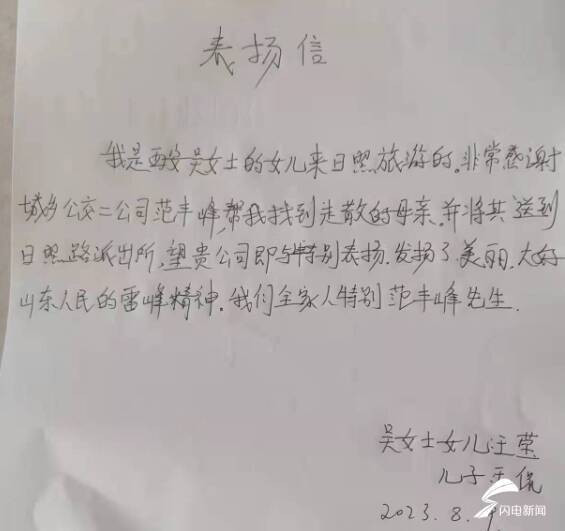 表扬信
我是西安吴女士的女儿来日照旅游的。非常感谢
城乡公交二公司范丰峰,帮我找到走散的母亲。并将其送到
日照路派出所,望贵公司即与特别表扬.发扬了美丽.大好
山东人民的雷峰精神。我们全家人特别范丰峰先生.
吴女士女儿汪荣
儿子王侃
2023.8.
闪电新闻